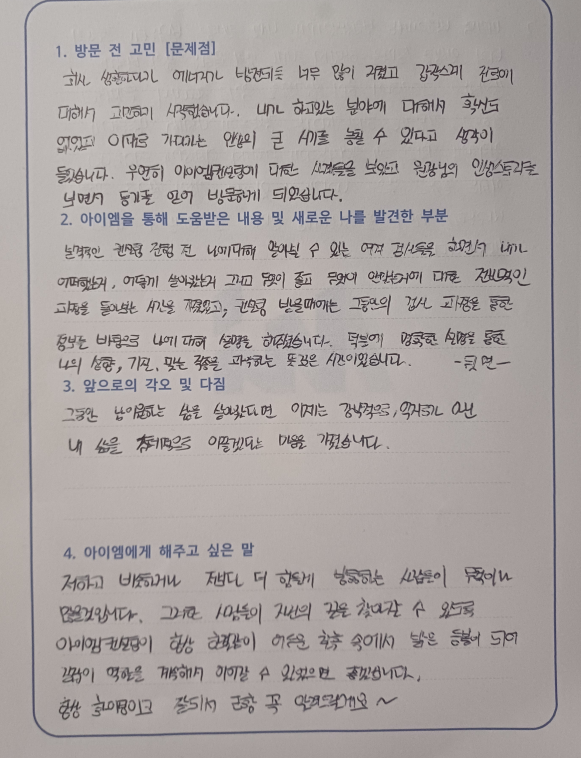 1. 방문 전 고민 [문제점]
회사 생활하다가 에너지가 방전되는 너무 많이 겪었고 갑작스레 진로에
대해서 고민하기 시작했습니다. 내가 하고있는 분야에 대해서 확신도
없었고 이대로 가다가는 인생의 큰 시기를 놓칠 수 있다고 생각이
들었습니다. 우연히 아이엠컨설팅에 대한 사례들을 보았고 원장님의 인생스토리를
보면서 동기를 얻어 방문하게 되었습니다.
2. 아이엠을 통해 도움받은 내용 및 새로운 나를 발견한 부분
본격적인 컨설팅 진행 전 나에대해 알아볼 수 있는 여러 검사들을 하면서 내가
어떠했는지, 어떻게 살아왔는지 그리고 무엇이 좋고 무엇이 안맞는지에 대한 전반적인
과정을 돌아보는 시간을 가졌었고, 컨설팅 받을때에는 그동안의 검사 과정을 통한
정보를 바탕으로 나에 대해 설명을 해주셨습니다. 덕분에 명확한 설명을 통한
나의 성향, 기질, 맞는 직업을 파악하는 뜻깊은 시간이었습니다. -뒷면-
3. 앞으로의 각오 및 다짐
그동안 남이원하는 삶을 살아왔다면 이제는 강박적으로, 억지로가 아닌
내 삶을 주체적으로 이끌겠다는 마음을 가졌습니다.
4. 아이엠에게 해주고 싶은 말
저하고 비슷하거나 저보다 더 힘들게 방황하는 사람들이 무척이나
많을것입니다. 그러한 사람들이 자신의 길을 찾아갈 수 있도록
아이엠컨설팅이 항상 한결같이 어두운 칠흑 속에서 밝은 등불이 되어
길잡이 역할을 계속해서 이어갈 수 있었으면 좋겠습니다.
항상 화이팅이고 잘되서 근황 꼭 알려드릴게요~